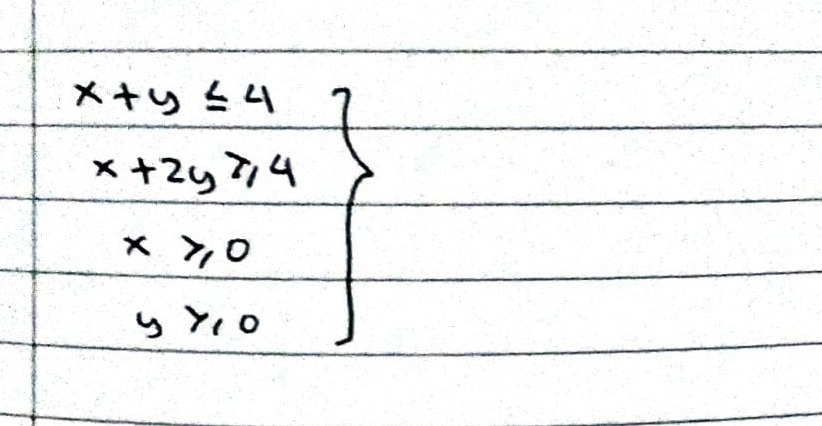 x + y ≤ 4
x + 2y ≥ 4
x ≥ 0
y ≥ 0